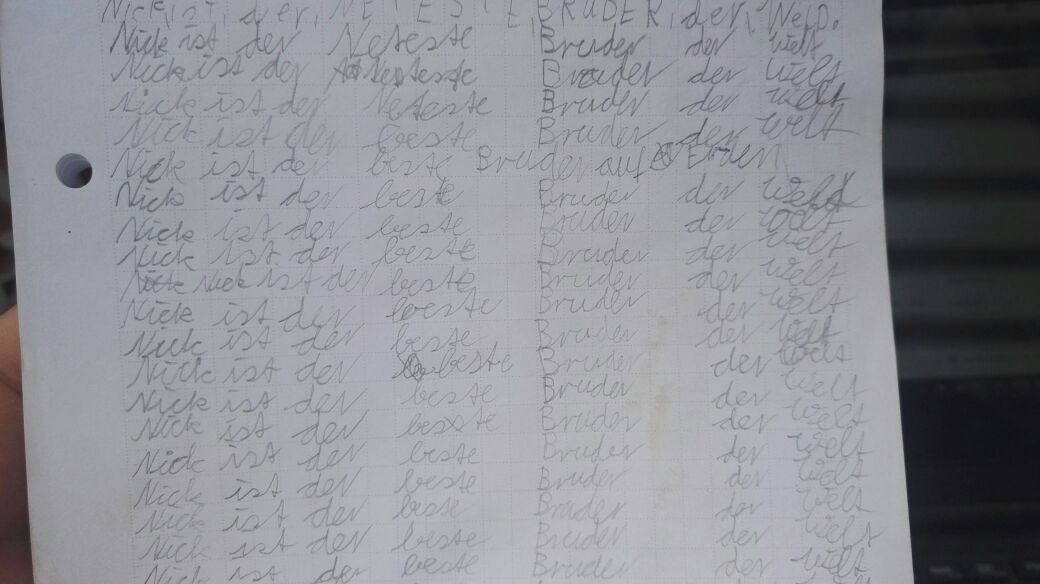 Nick, ist, der, NETESTE, BRUDER, der, Welt.
Nick ist der Neteste Bruder der welt
Nick ist der Neteste Bruder der welt
Nick ist der Neteste Bruder der welt
Nick ist der beste Bruder der welt
Nick ist der beste Bruder auf Erden
Nick ist der beste Bruder der welt
Nick ist der beste Bruder der welt
Nick ist der beste Bruder der welt
Nick ist der beste Bruder der welt
Nick ist der beste Bruder der welt
Nick ist der beste Bruder der welt
Nick ist der beste Bruder der welt
Nick ist der beste Bruder der welt
Nick ist der beste Bruder der welt
Nick ist der beste Bruder der welt
Nick ist der beste Bruder der welt
Nick ist der beste Bruder der welt
Nick ist der beste Bruder der welt
Nick ist der beste Bruder der welt